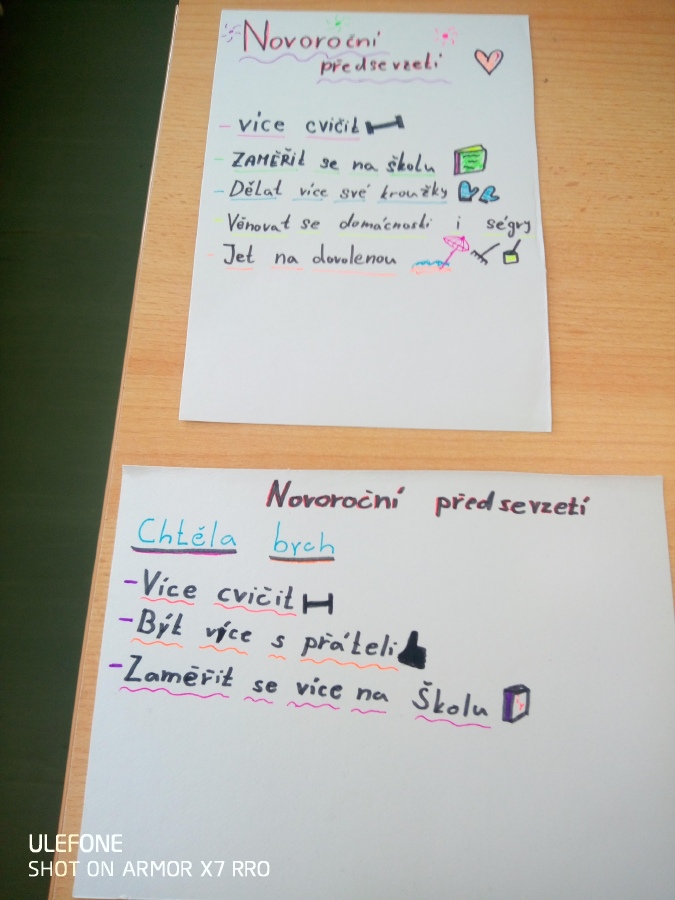 Novoroční
předsevzetí
- více cvičit
- ZAMĚŘit se na školu
- Dělat více své kroužky
Věnovat se domácnosti i ségry
- Jet na dovolenou
Novoroční předsevzetí
Chtěla bych
- Více cvičit
- Být více s přáteli
- Zaměřit se více na Školu
ULEFONE
SHOT ON ARMOR X7 RRO